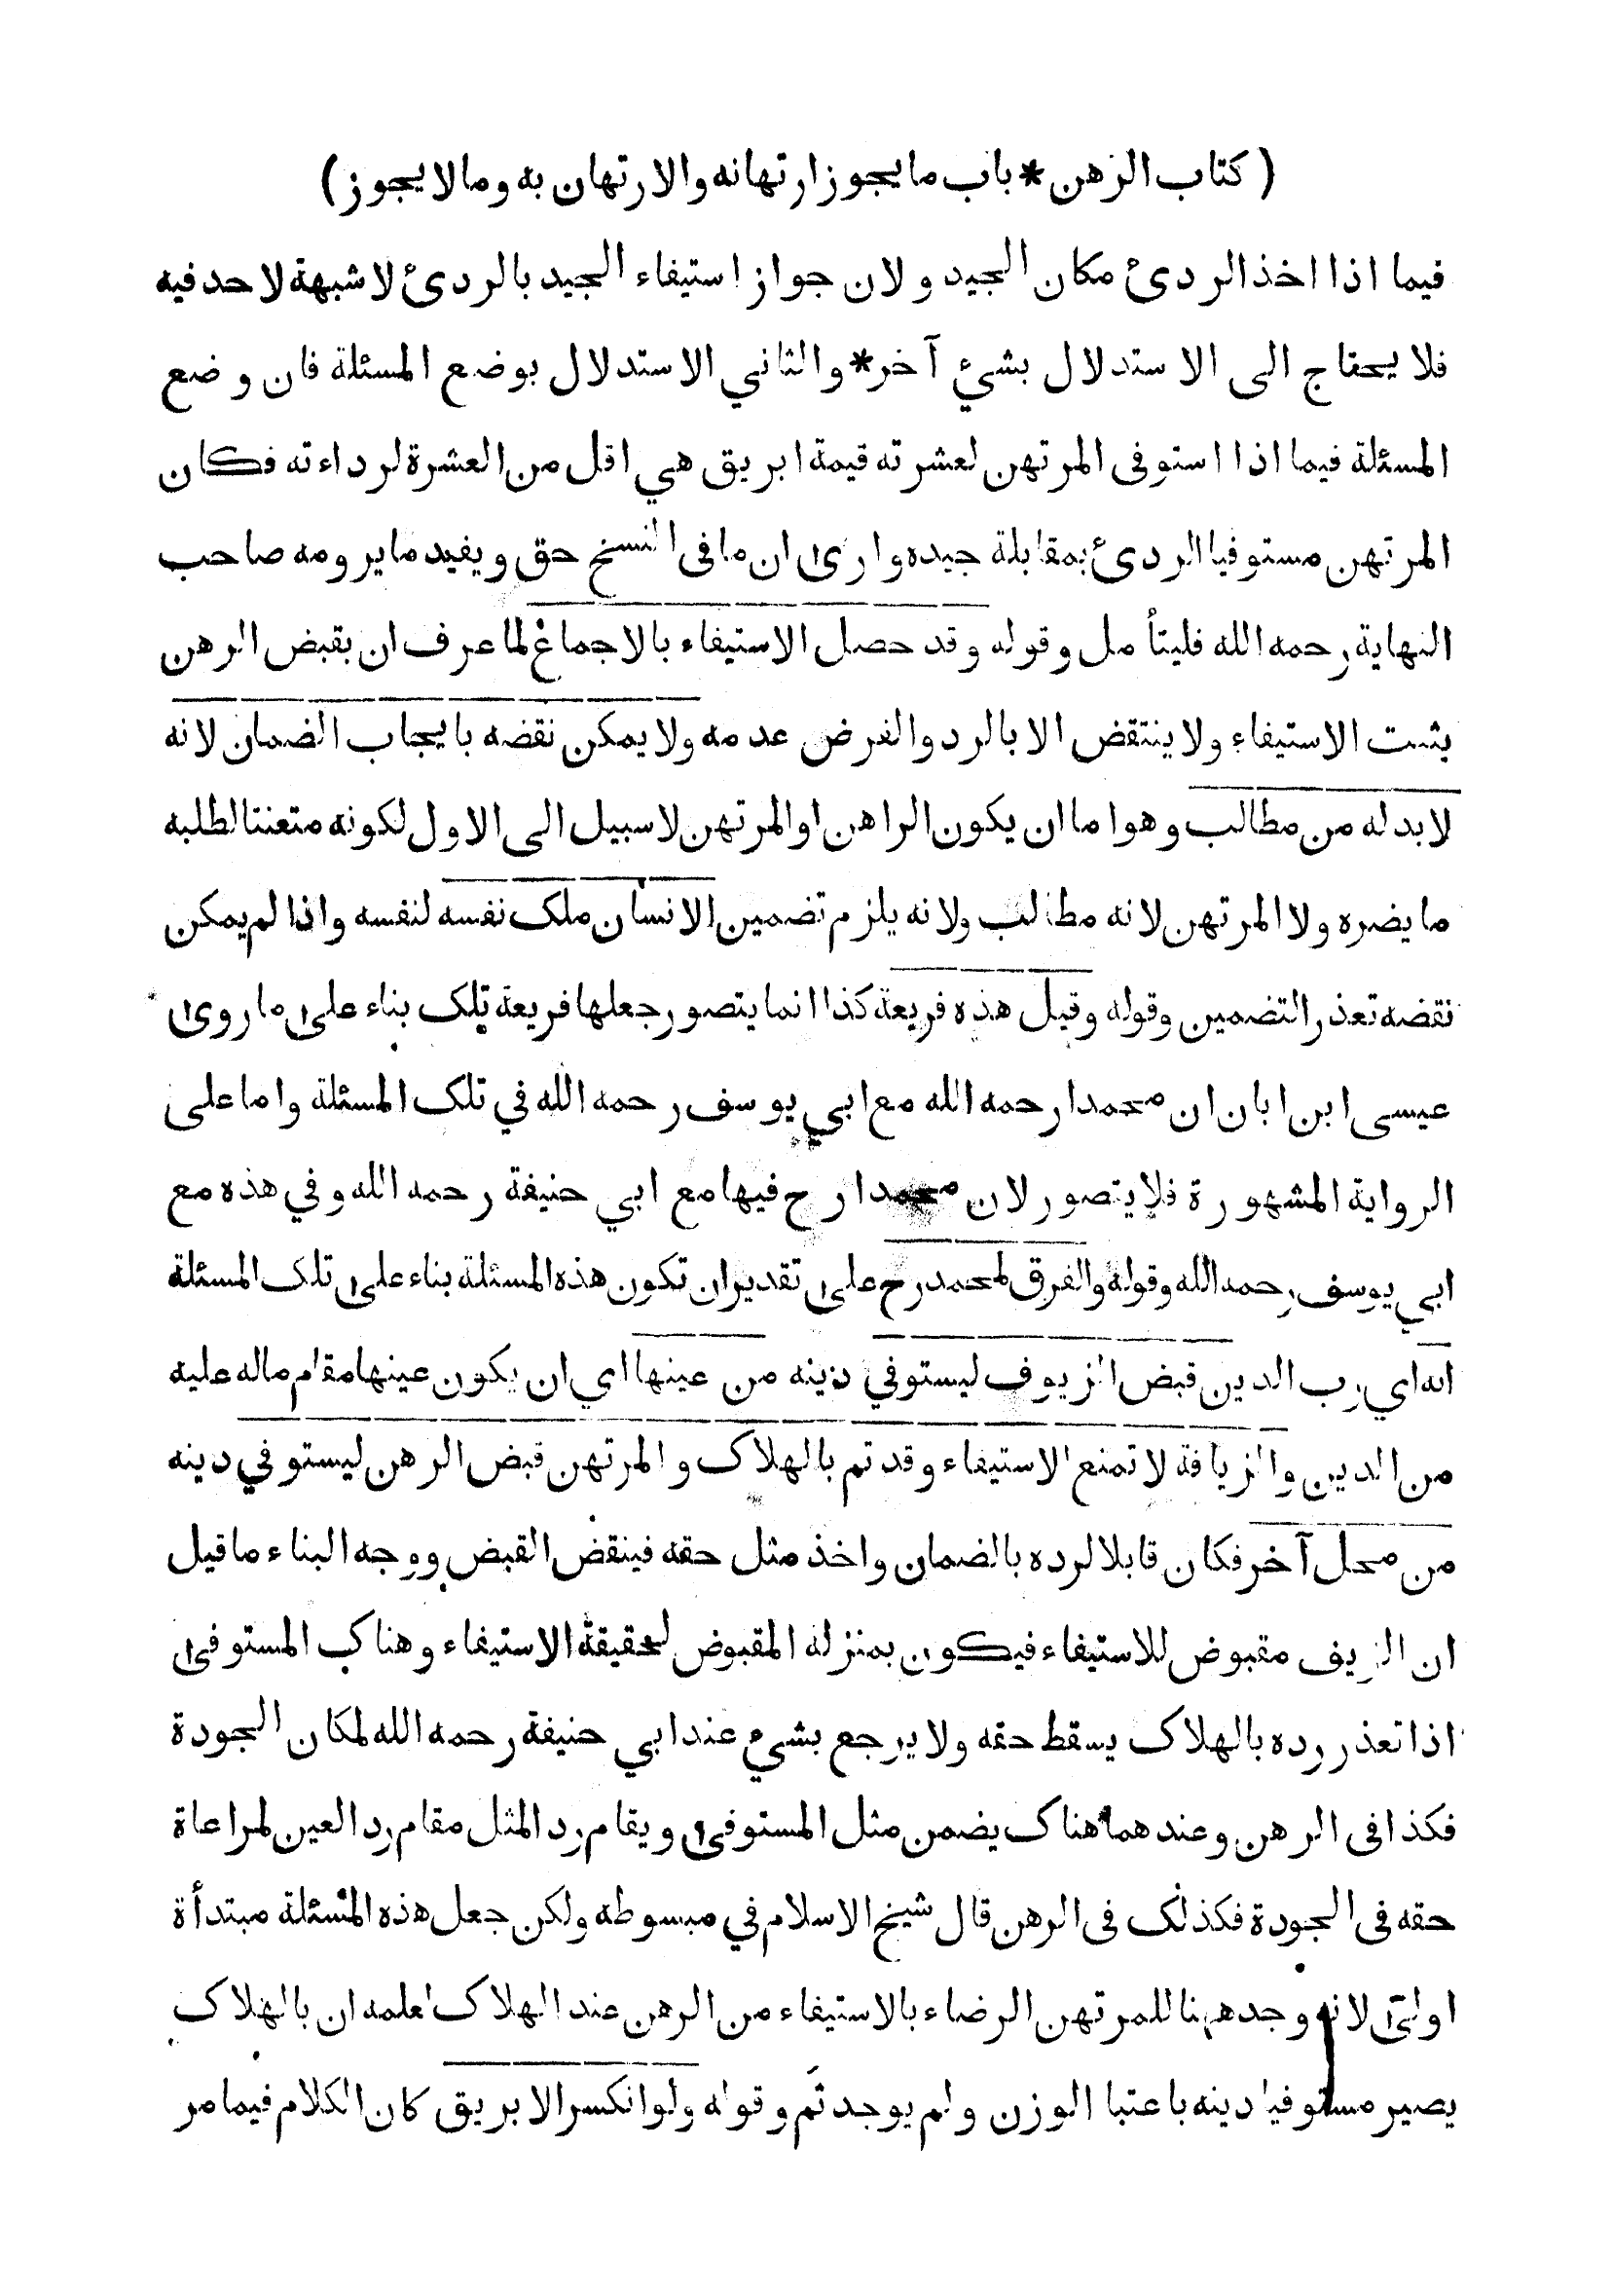 ( كتاب الرهن * باب ما يجوز ارتهانه والارتهان به وما لا يجوز )
فيما اذا اخذ الردئ مكان الجيد ولان جواز استيفاء الجيد بالردئ لا شبهة لاحد فيه
فلا يحتاج الى الاستدلال بشئ آخر * والثاني الاستدلال بوضع المسئلة فان وضع
المسئلة فيما اذا استوفى المرتهن لعشرته قيمة ابريق هي اقل من العشرة لرداءته فكان
المرتهن مستوفيا الردئ بمقابلة جيده وارى ان ما فى النسخ حق ويفيد ما يرومه صاحب
النهاية رحمه الله فليتأمل وقوله وقد حصل الاستيفاء بالاجماع لما عرف ان بقبض الرهن
يثبت الاستيفاء ولا ينتقض الا بالرد والفرض عدمه ولا يمكن نقضه بايجاب الضمان لانه
لا بد له من مطالب وهو اما ان يكون الراهن او المرتهن لا سبيل الى الاول لكونه متعنتا لطلبه
ما يضره ولا المرتهن لانه مطالب ولانه يلزم تضمين الانسان ملك نفسه لنفسه واذا لم يمكن
نقضه تعذر التضمين وقوله وقيل هذه فريعة كذا انما يتصور جعلها فريعة تلك بناء على ما روى
عيسى ابن ابان ان محمدا رحمه الله مع ابي يوسف رحمه الله في تلك المسئلة واما على
الرواية المشهورة فلا يتصور لان محمدا رح فيها مع ابي حنيفة رحمه الله وفي هذه مع
ابي يوسف رحمه الله وقوله والفرق لمحمد رح على تقدير ان تكون هذه المسئلة بناء على تلك المسئلة
انه اي رب الدين قبض الزيوف ليستوفي دينه من عينها اي ان يكون عينها مقام ماله عليه
من الدين والزيافة لا تمنع الاستيفاء وقد تم بالهلاك والمرتهن قبض الرهن ليستوفي دينه
من محل آخر فكان قابلا لرده بالضمان واخذ مثل حقه فينقض القبض ووجه البناء ما قيل
ان الزيف مقبوض للاستيفاء فيكون بمنزلة المقبوض لحقيقة الاستيفاء وهناك المستوفى
اذا تعذر رده بالهلاك يسقط حقه ولا يرجع بشئ عند ابي حنيفة رحمه الله لمكان الجودة
فكذا فى الرهن وعندهما هناك يضمن مثل المستوفى ويقام رد المثل مقام رد العين لمراعاة
حقه فى الجودة فكذلك فى الرهن قال شيخ الاسلام في مبسوطه ولكن جعل هذه المسئلة مبتدأة
اولى لانه وجد ههنا للمرتهن الرضاء بالاستيفاء من الرهن عند الهلاك لعلمه ان بالهلاك
يصير مستوفيا دينه باعتبا الوزن ولم يوجد ثم وقوله ولو انكسر الابريق كان الكلام فيما مر